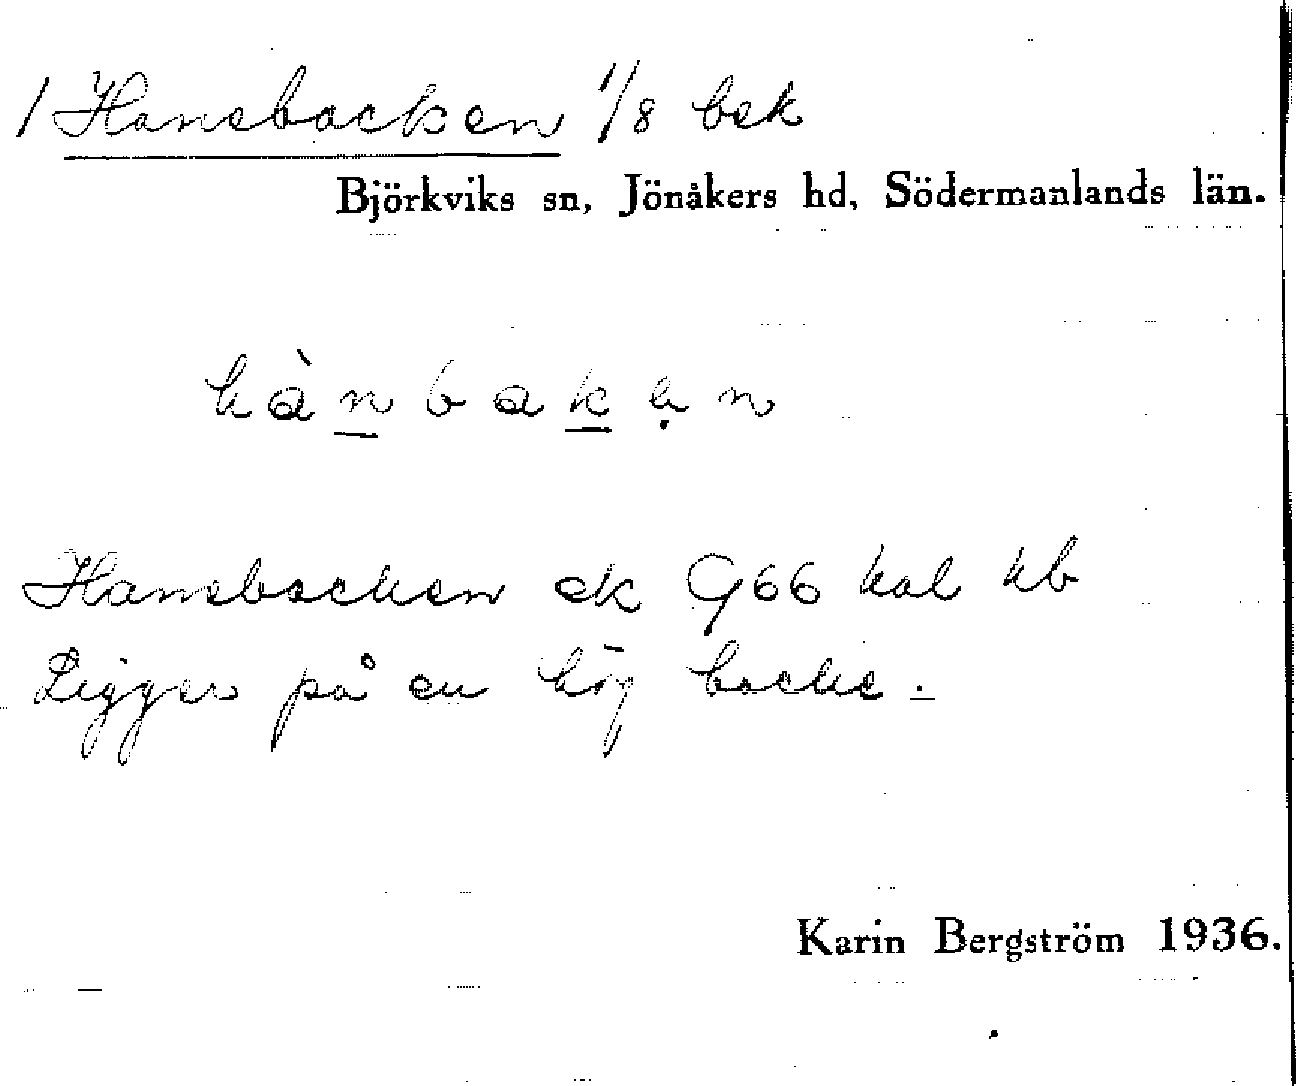 1 Hansbacken 1/8 bek
Björkviks sn, Jönåkers hd, Södermanlands län.
hànbakən
Hansbacken ek G66 kal kb
Ligger på en hög backe.
Karin Bergström 1936.